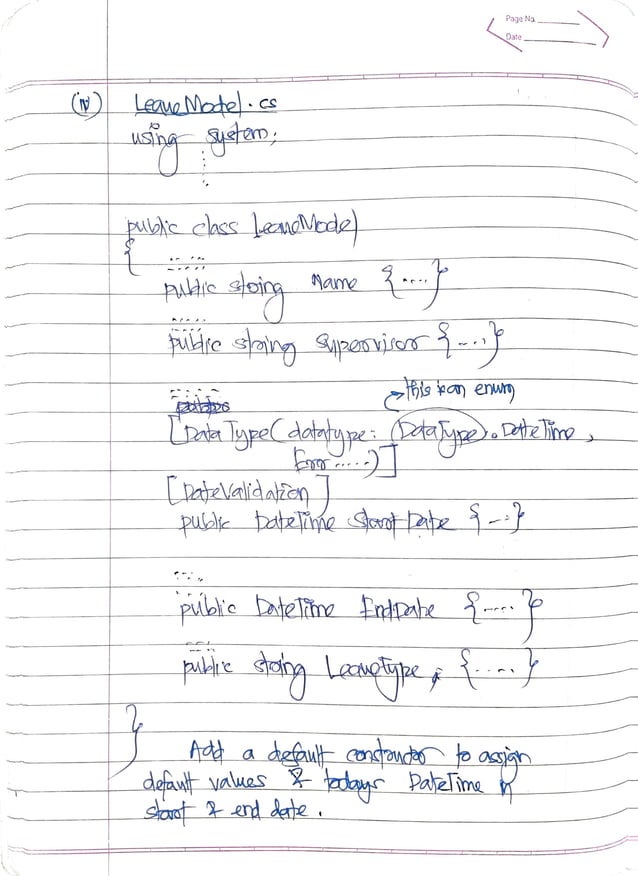 Page No.
Date
(iv) LeaveModel.cs
using system;
public class LeaveModel
{
public string Name {....}
public string Supervisor {....}
this is an enum
[DataType(datatype: DataType.DateTime,
Error.....)]
[DateValidation]
public DateTime StartDate {...}
public DateTime EndDate {....}
public string Leavetype {.....}
}
Add a default constructor to assign
default values & todays DateTime in
start & end date.